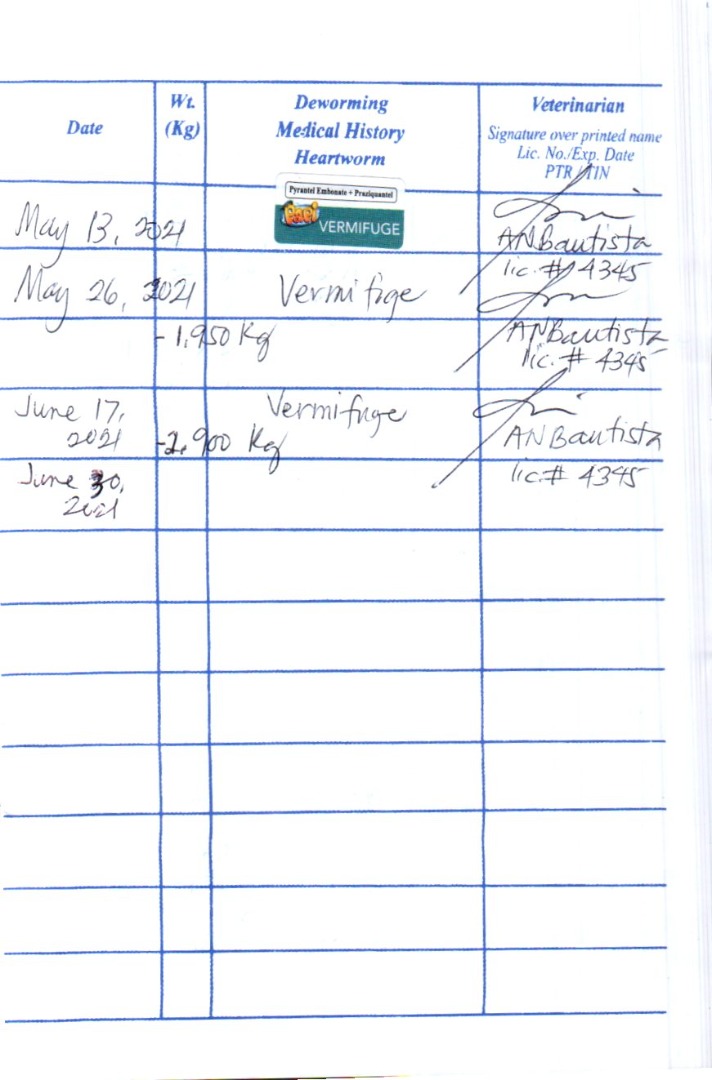 Date
Wt.
(Kg)
Deworming
Medical History
Heartworm
Veterinarian
Signature over printed name
Lic. No./Exp. Date
PTR / TIN
May 13, 2021
Pyrantel Embonate + Praziquantel
Papi
VERMIFUGE
ANBautista
lic. # 4345
May 26, 2021
Vermifuge
- 1,950 Kg
ANBautista
lic. # 4345
June 17,
2021
Vermifuge
-2,900 Kg
ANBautista
lic.# 4345
June 30,
2021